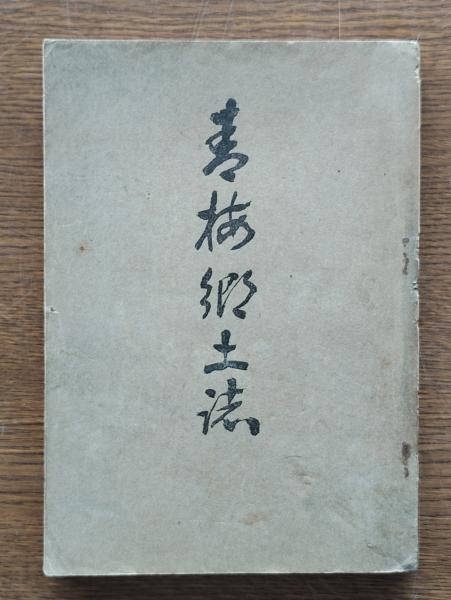 青梅郷土誌